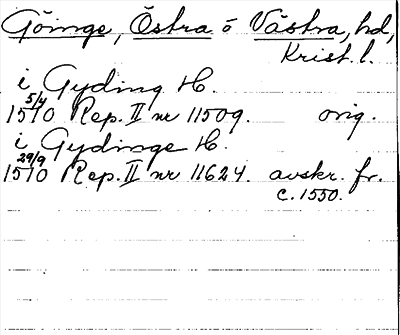 Göinge, Östra o Västra, hd,
Krist. l.
i Gyding H.
1510 5/4 Rep. II nr 11509. orig.
i Gydinge H.
1510 29/9 Rep. II nr 11624. avskr. fr.
c. 1550.